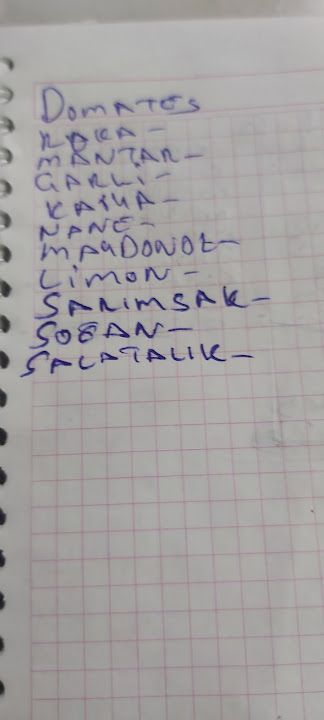 DOMATES
ROKA -
MANTAR -
GARLi -
NANE -
MAYDONOZ -
LiMON -
SARIMSAK -
SOĞAN -
SALATALIK -